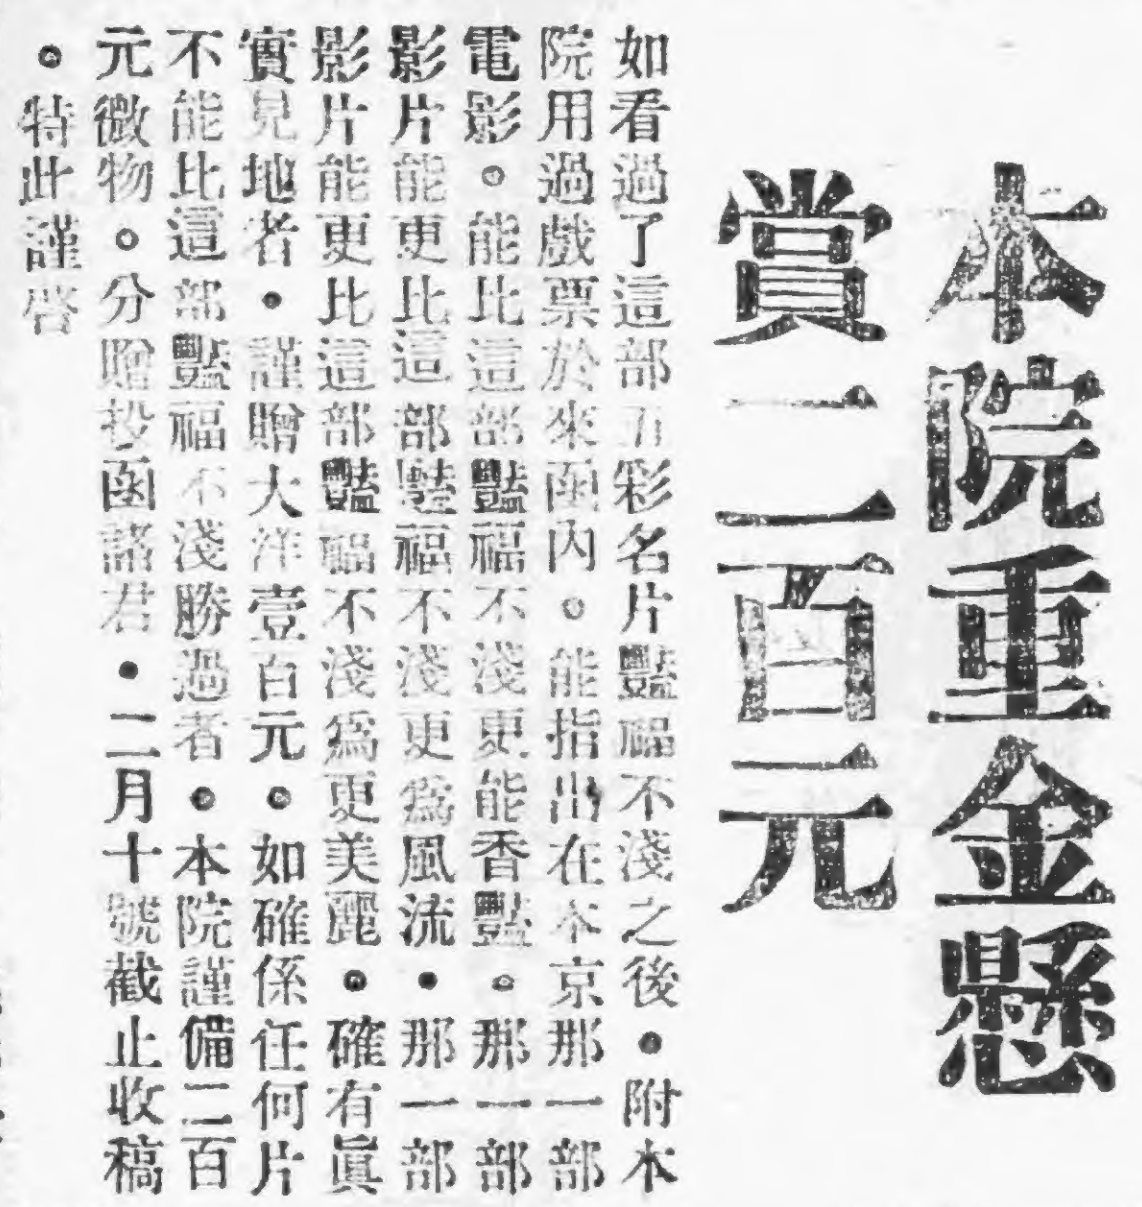 本院重金懸
賞二百元
如看過了這部五彩名片豔福不淺之後。附本
院用過戲票於來函內。能指出在本京那一部
電影。能比這部豔福不淺更能香豔。那一部
影片能更比這部豔福不淺更爲風流。那一部
影片能更比這部豔福不淺爲更美麗。確有眞
實見地者。謹贈大洋壹百元。如確係任何片
不能比這部豔福不淺勝過者。本院謹備二百
元微物。分贈投函諸君。二月十號截止收稿
。特此謹啓